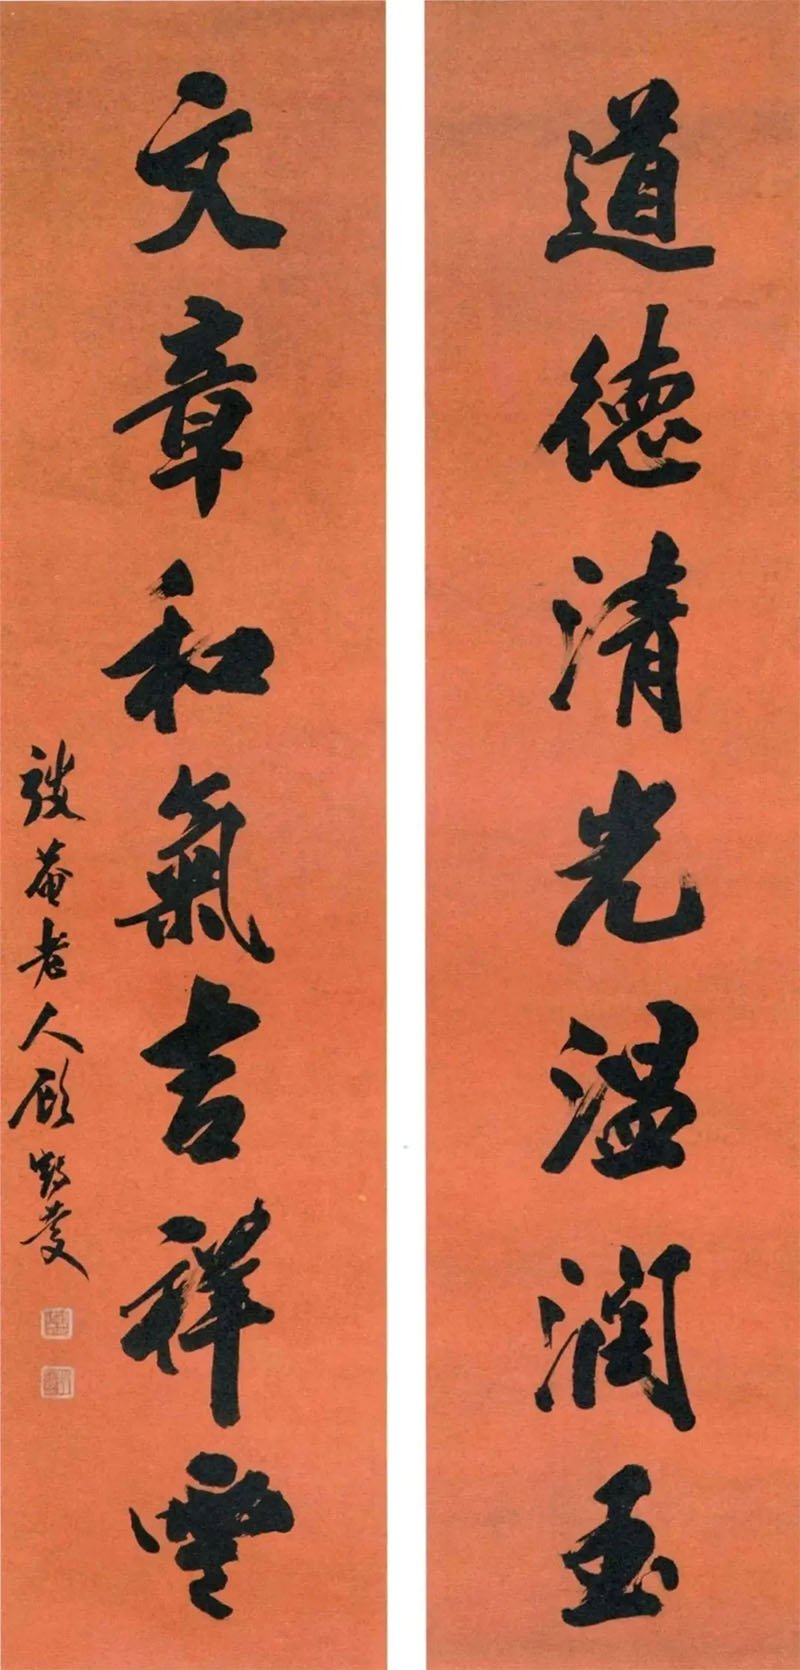 道德清光温潤玉
文章和氣吉祥雲
弢菴老人顧鶴慶